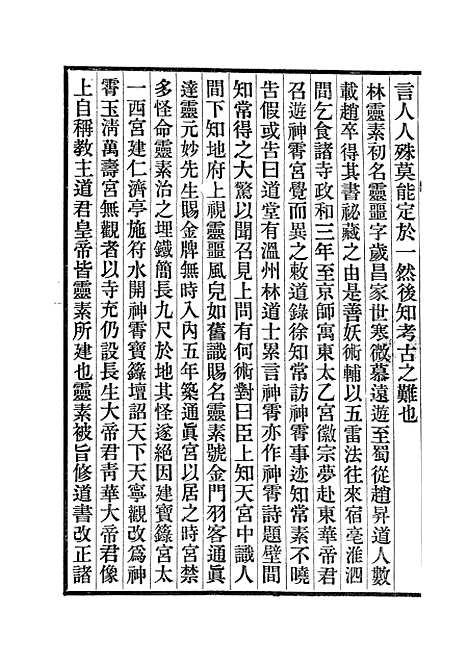 言人人殊莫能定於一然後知考古之難也
林靈素初名靈噩字歲昌家世寒微慕遠遊至蜀從趙昇道人數
載趙卒得其書祕藏之由是善妖術輔以五雷法往來宿亳淮泗
間乞食諸寺政和三年至京師寓東太乙宮徽宗夢赴東華帝君
召遊神霄宮覺而異之敕道錄徐知常訪神霄事迹知常素不曉
告假或告曰道堂有溫州林道士累言神霄亦作神霄詩題壁間
知常得之大驚以聞召見上問有何術對曰臣上知天宮中識人
間下知地府上視靈噩風皃如舊識賜名靈素號金門羽客通眞
達靈元妙先生賜金牌無時入內五年築通眞宮以居之時宮禁
多怪命靈素治之埋鐵簡長九尺於地其怪遂絕因建寶籙宮太
一西宮建仁濟亭施符水開神霄寶籙壇詔天下天寧觀改爲神
霄玉淸萬壽宮無觀者以寺充仍設長生大帝君靑華大帝君像
上自稱敎主道君皇帝皆靈素所建也靈素被旨修道書改正諸